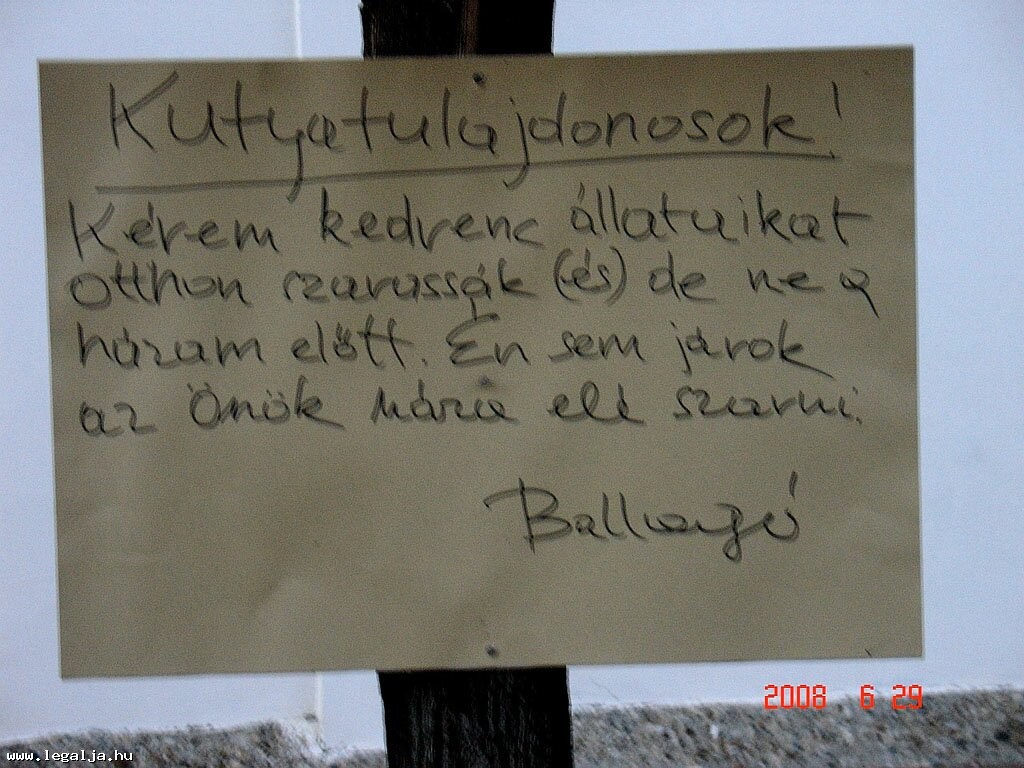 Kutyatulajdonosok!
Kérem kedvenc állatuikat
otthon szarassák (és) de ne a
házam előtt. Én sem járok
az Önök háza elé szarni.
2008 6 29
www.legalja.hu